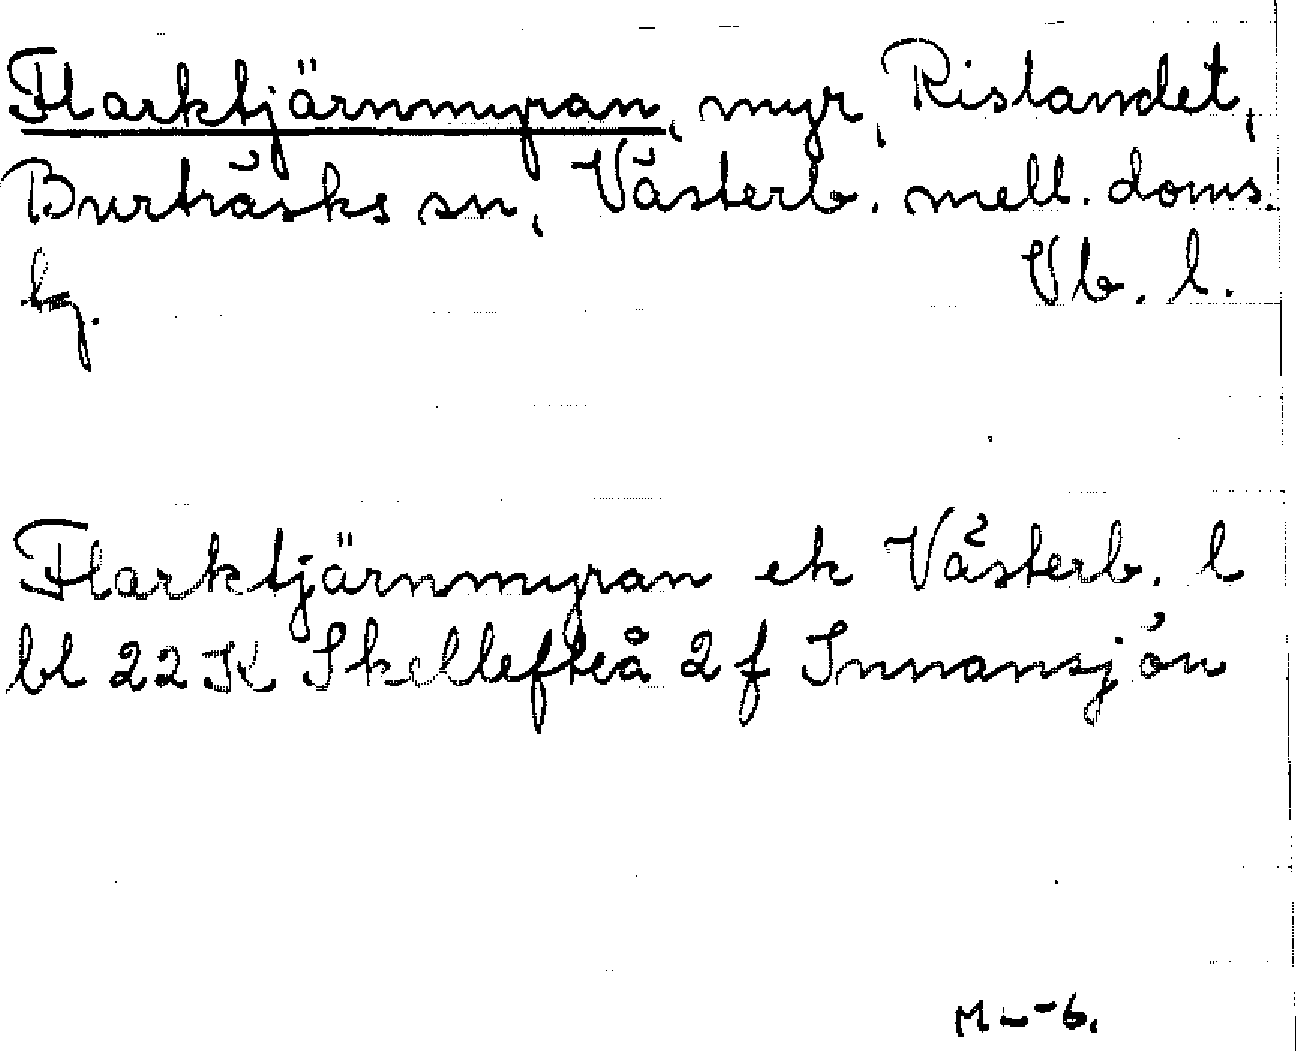 Flarktjärnmyran, myr, Rislandet,
Burträsks sn, Västerb. mell. doms.
hg. Vb. l.
Flarktjärnmyran ek Västerb. l
bl 22K Skellefteå 2f Innansjön